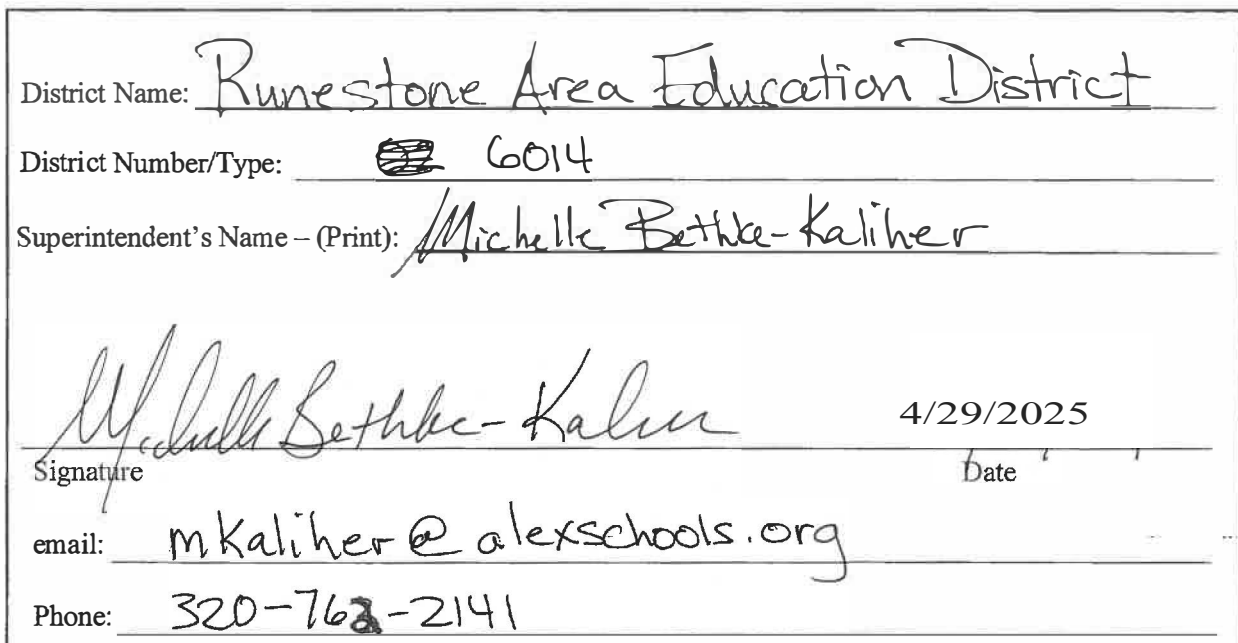 District Name: Runestone Area Education District
District Number/Type: 6014
Superintendent's Name – (Print): Michelle Bethke-Kaliher
Michelle Bethke-Kaliher 4/29/2025
Signature Date
email: mkaliher@alexschools.org
Phone: 320-762-2141